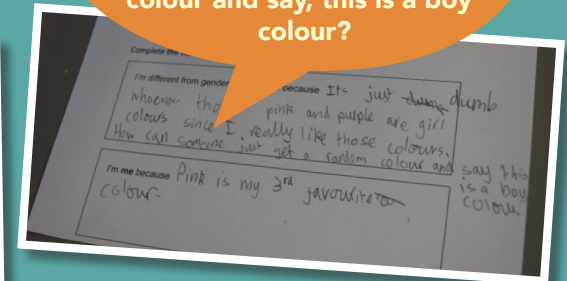 colour and say, this is a boy
colour?
Complete the
I'm different from gender because Its just dumb dumb
whoever tho pink and purple are girl
colours since I really like those colours.
How can someone just get a random colour and say this
is a boy
colour.
I'm me because Pink is my 3rd favourite
colour.